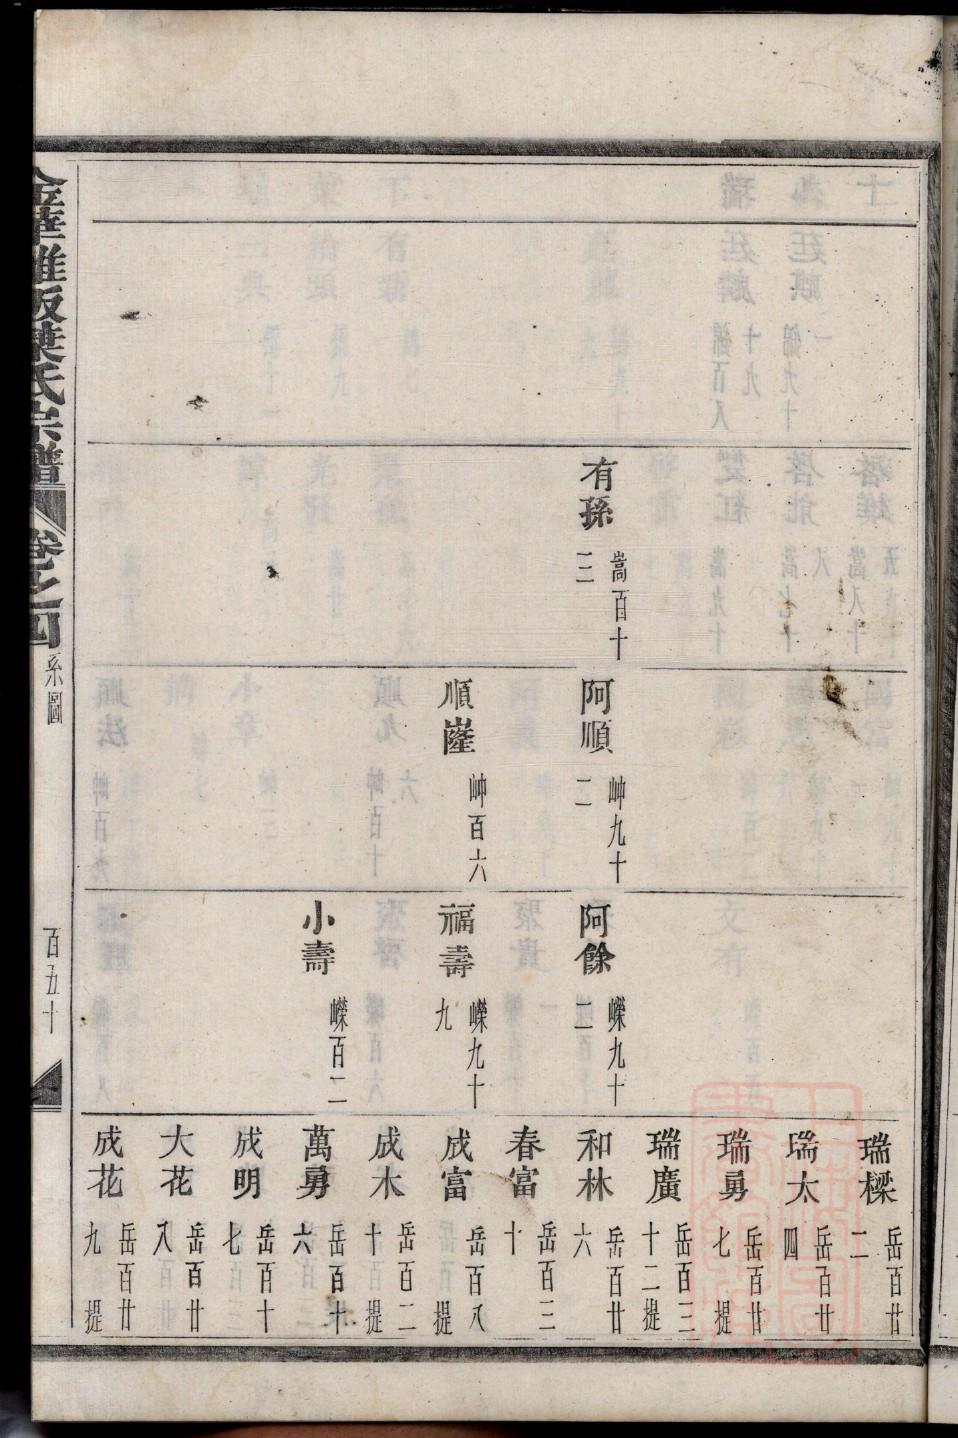 金華雅畈葉氏宗譜 卷之四 系圖 百五十
有孫 嵩百十三
阿順 岫九十二
順窿 岫百六
阿餘 嶸九十二
福壽 嶸九十九
小壽 嶸百二
瑞樑 岳百廿二
瑞太 岳百廿四
瑞勇 岳百廿七 提
瑞廣 岳百三十二 提
和林 岳百廿六
春富 岳百三十
成富 岳百八 提
成木 岳百二十 提
萬勇 岳百十六
成明 岳百十七
大花 岳百廿八
成花 岳百廿九 提